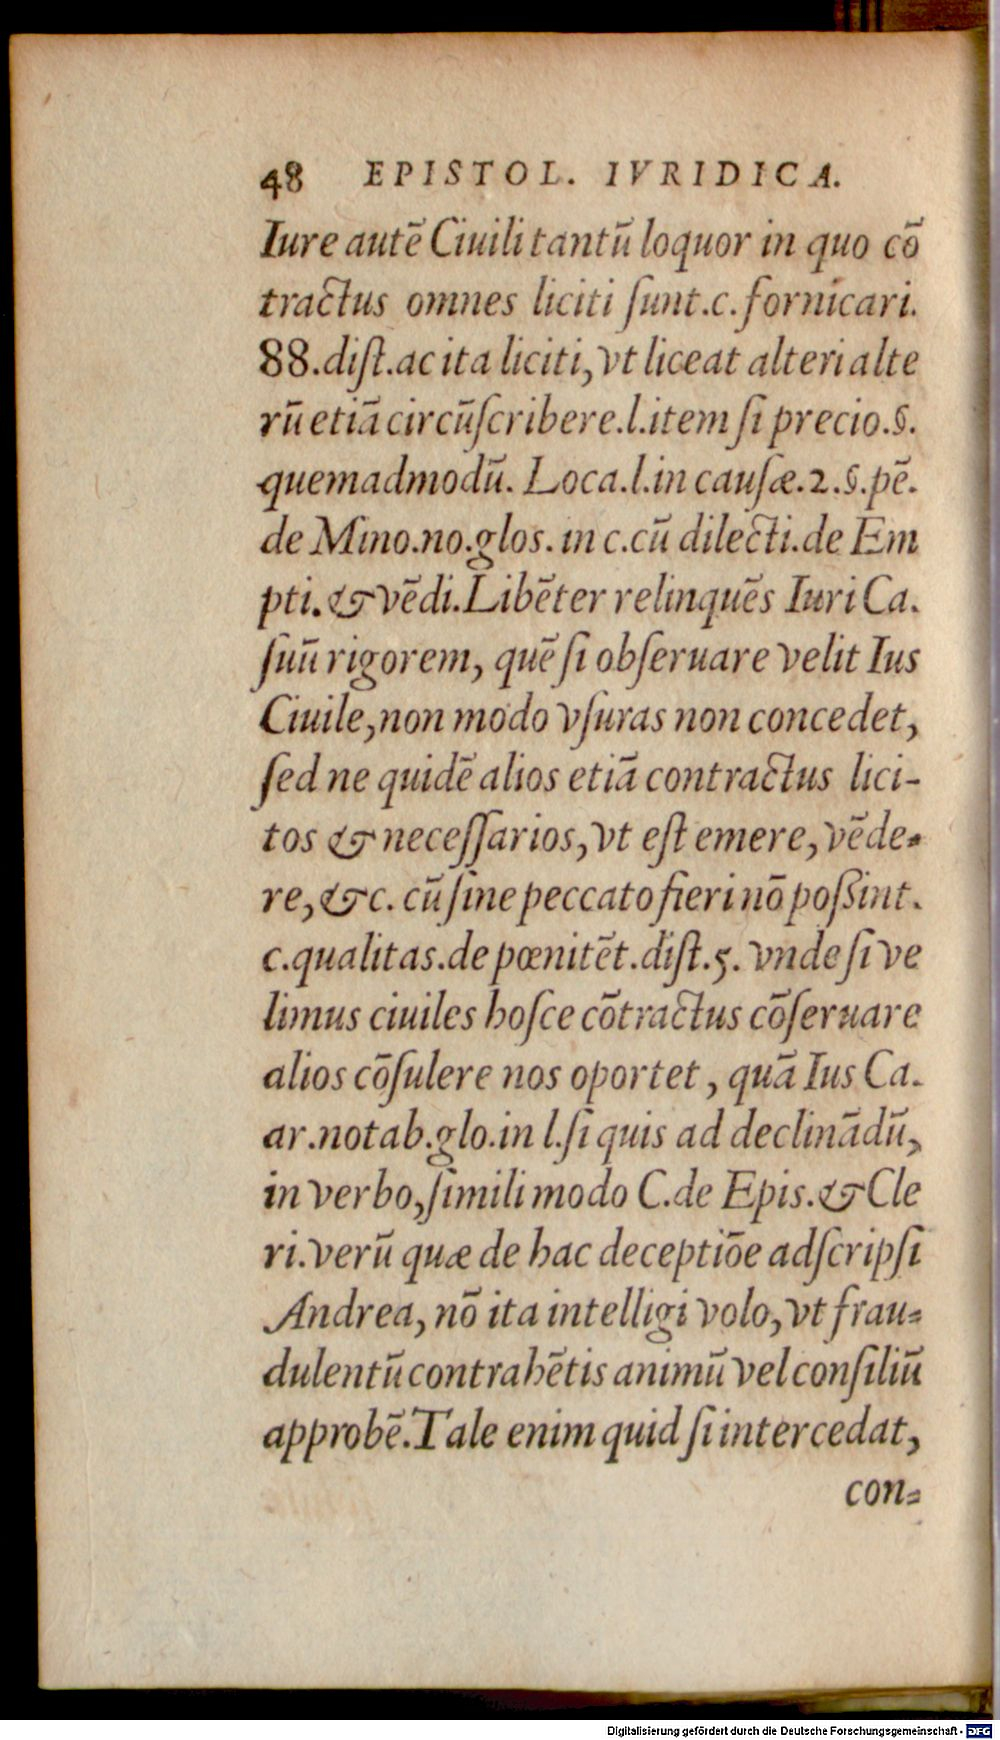 48 EPISTOL. IVRIDICA.
Iure autē Ciuili tantū loquor in quo cō
tractus omnes liciti ſunt.c.fornicari.
88.diſt.ac ita liciti, vt liceat alteri alte
rū etiā circūſcribere.l.item ſi precio.§.
quemadmodū. Loca.l.in cauſæ.2.§.pē.
de Mino.no.glos. in c.cū dilecti.de Em
pti.&vēdi.Libēter relinquēs Iuri Ca.
ſuū rigorem, quē ſi obſeruare velit Ius
Ciuile, non modo vſuras non concedet,
ſed ne quidē alios etiā contractus lici-
tos & neceſſarios, vt eſt emere, vēde-
re, &c. cū ſine peccato fieri nō poßint.
c.qualitas.de pœnitēt.diſt.5. vnde ſi ve
limus ciuiles hoſce cōtractus cōſeruare
alios cōſulere nos oportet, quā Ius Ca.
ar.notab.glo.in l.ſi quis ad declinādū,
in verbo, ſimili modo C.de Epis.& Cle
ri.verū quæ de hac deceptiōe adſcripſi
Andrea, nō ita intelligi volo, vt frau-
dulentū contrahētis animū vel conſiliū
approbē.Tale enim quid ſi intercedat,
con-
Digitalisierung gefördert durch die Deutsche Forschungsgemeinschaft - DFG